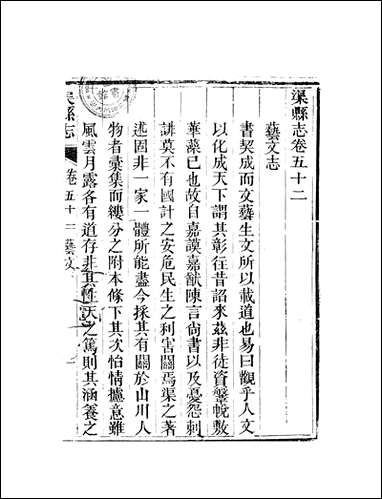 渠縣志卷五十二
藝文志
書契成而文藝生文所以載道也易曰觀乎人文
以化成天下謂其彰往昔詔來茲非徒資鞶帨敷
華藻已也故自嘉謨嘉猷陳言尙書以及憂怨刺
誹莫不有國計之安危民生之利害關焉渠之著
述固非一家一體所能盡今採其有關於山川人
物者彙集而縷分之附本條下其次怡情攄意雖
風雲月露各有道存非其性天之篤則其涵養之
縣志
卷五十二 藝文